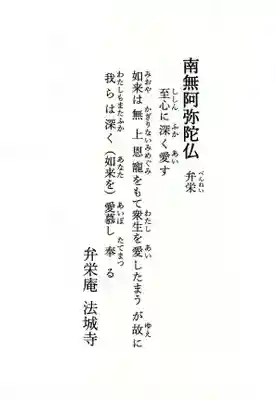 南無阿弥陀仏
弁栄
べんねい
至心に深く愛す
ししん ふか あい
如来は無上恩寵をもて衆生を愛したまうが故に
みおや かぎりないみめぐみ わたし あい ゆえ
我らは深く(如来を)愛慕し奉る
わたしもまたふか あなた あいぼ たてまつ
弁栄庵 法城寺